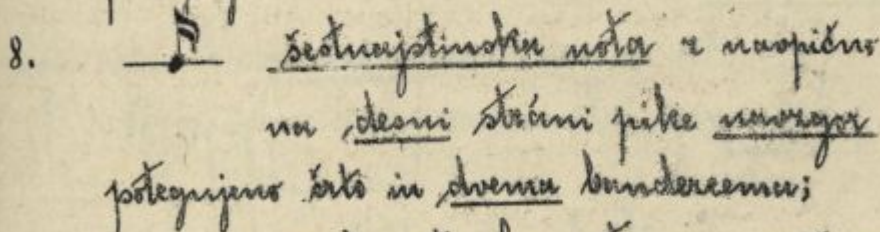 8. šestnajstinska nota z navpično
na desni stráni pike navzgor
potegnjeno črto in dvema bandercema;